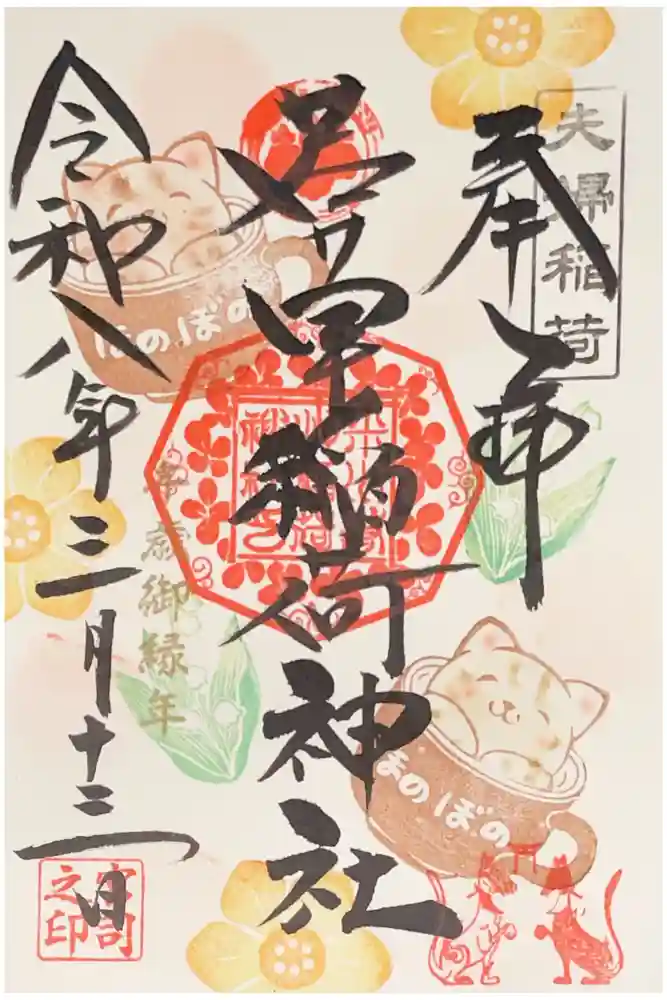 奉拝
夫婦稲荷
稲荷神社
令和八年三月十三日
午歳御縁年
ほのぼの
ほのぼの
宮司之印